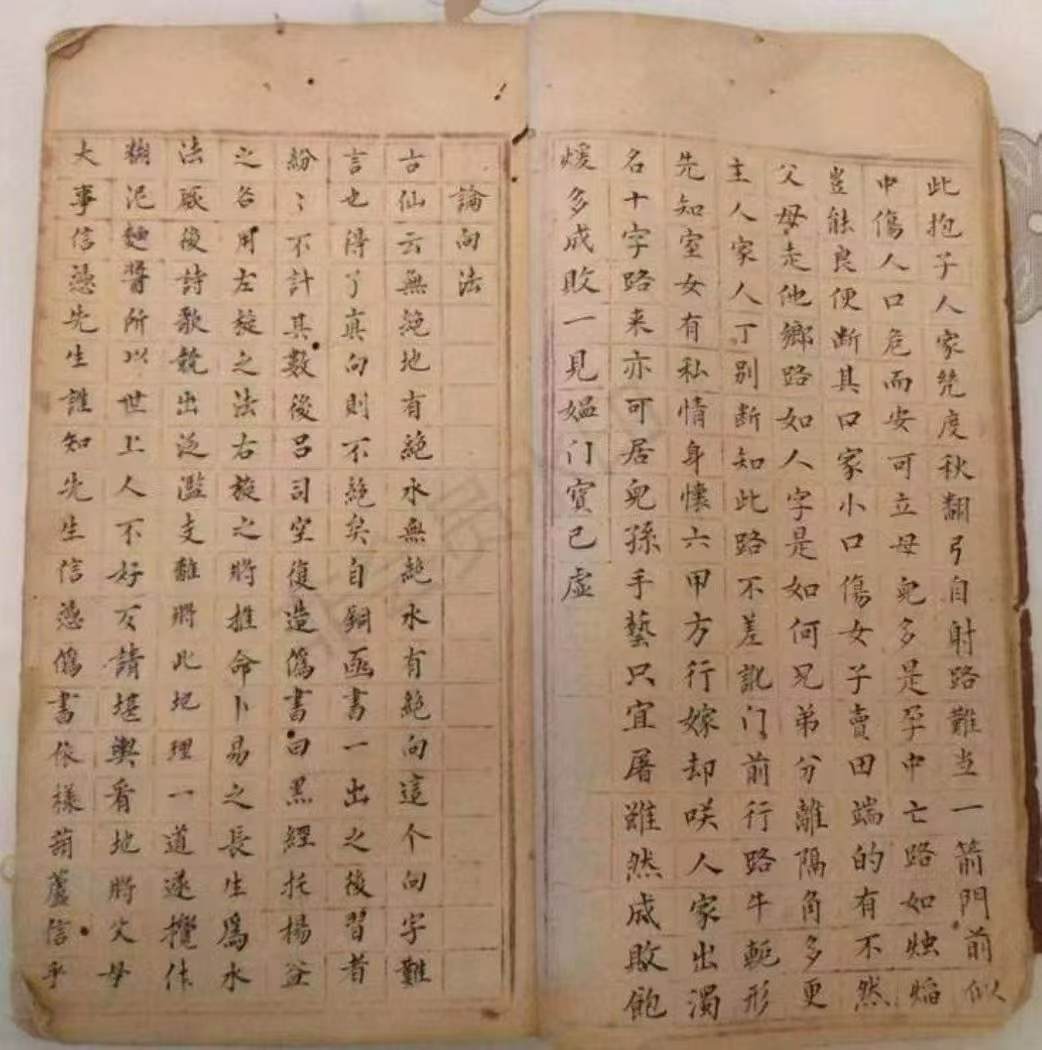 此抱子人家凭度秋翻弓自射路難当一箭門前似
中傷人口危而安可立母兒多是孕中亡路如烛焰
豈能良便断其口家小口傷女子賣田端的有不然
父母走他鄉路如人字是如何兄弟分離隔角多更
主人家人丁别断知此路不差訛门前行路牛軛形
先知室女有私情身懷六甲方行嫁却咲人家出濁
名十字路来亦可居兒孫手藝只宜屠雖然成敗飽
煖多成敗一見媪门寳已虚
論向法
古仙云無絶地有絶水無絶水有絶向這个向字難
言也得了真向則不絶矣自銅凾書一出之後習者
紛〻不計其數後吕司空復造僞書曰黑經托楊益
之名用左旋之法右旋之將推命卜易之長生爲水
法厥後詩歌競出泛濫支離將此地理一道遂攪作
糊泥麵醬所以世上人不好友請堪輿看地將父母
大事信憑先生誰知先生信憑僞書依樣葫蘆信乎